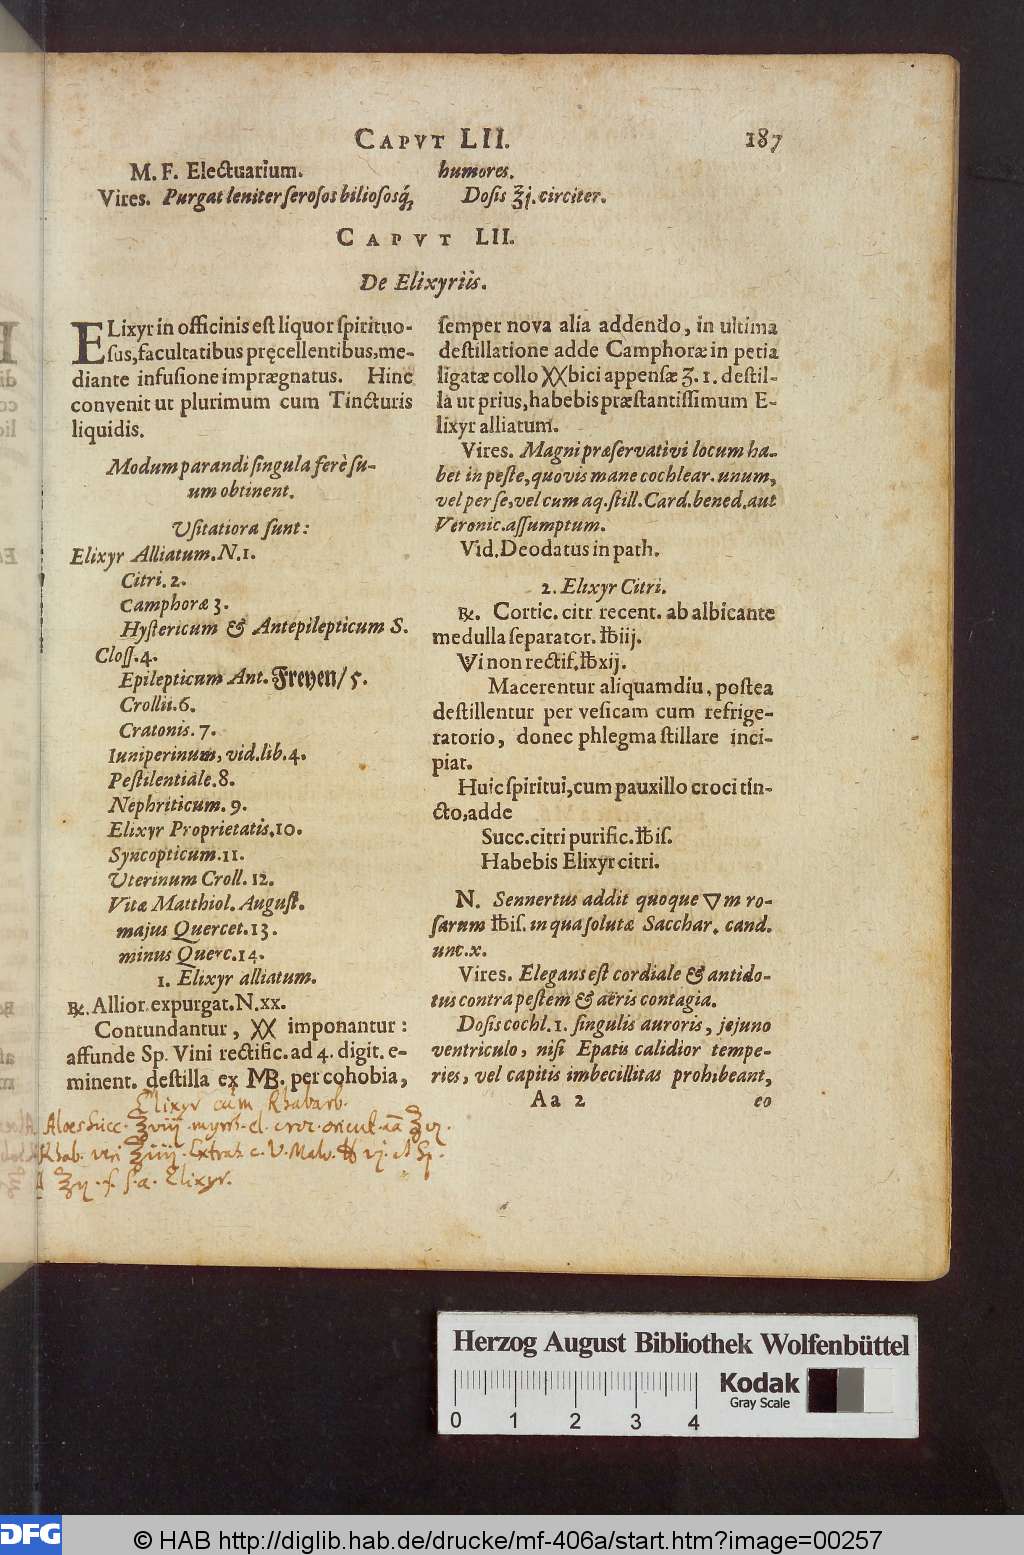 CAPVT LII. 187
M. F. Electuarium.
Vires. Purgat leniter serosos biliososq́;
humores.
Dosis ʒj. circiter.
CAPVT LII.
De Elixyriis.
ELixyr in officinis est liquor spirituo-
sus, facultatibus pręcellentibus, me-
diante infusione imprægnatus. Hinc
convenit ut plurimum cum Tincturis
liquidis.
Modum parandi singula ferè su-
um obtinent.
Usitatiora sunt:
Elixyr Alliatum. N. 1.
Citri. 2.
Camphoræ 3.
Hystericum & Antepilepticum S.
Closs. 4.
Epilepticum Ant. Freyen/ 5.
Crollii. 6.
Cratonis. 7.
Iuniperinum, vid. lib. 4.
Pestilentiale. 8.
Nephriticum. 9.
Elixyr Proprietatis. 10.
Syncopticum. 11.
Uterinum Croll. 12.
Vitæ Matthiol. August.
majus Quercet. 13.
minus Querc. 14.
1. Elixyr alliatum.
℞. Allior. expurgat. N. xx.
Contundantur, XX imponantur:
affunde Sp. Vini rectific. ad 4. digit. e-
minent. destilla ex MB. per cohobia,
semper nova alia addendo, in ultima
destillatione adde Camphoræ in petia
ligatæ collo XXbici appensæ ʒ. 1. destil-
la ut prius, habebis præstantissimum E-
lixyr alliatum.
Vires. Magni præservativi locum ha-
bet in peste, quovis mane cochlear. unum,
vel per se, vel cum aq. still. Card. bened. aut
Veronic. assumptum.
Vid. Deodatus in path.
2. Elixyr Citri.
℞. Cortic. citr recent. ab albicante
medulla separator. ℔iij.
Vi non rectif. ℔xij.
Macerentur aliquamdiu, postea
destillentur per vesicam cum refrige-
ratorio, donec phlegma stillare inci-
piat.
Huic spiritui, cum pauxillo croci tin-
cto, adde
Succ. citri purific. ℔is.
Habebis Elixyr citri.
N. Sennertus addit quoque ▽m ro-
sarum ℔is. in qua solutæ Sacchar. cand.
unc. x.
Vires. Elegans est cordiale & antido-
tus contra pestem & aëris contagia.
Dosis cochl. 1. singulis auroris, jejuno
ventriculo, nisi Epatis calidior tempe-
ries, vel capitis imbecillitas prohibeant,
Aa 2 eo
Elixyr cum Rhabarb.
Aloes succ. ʒviij. myrrh. el. croc. orient. aã ʒij.
Rhab. veri ʒiiij. Extrah. c. V. Malv. ℔ vj.
ʒij. f. s. a. Elixyr.
Herzog August Bibliothek Wolfenbüttel
0 1 2 3 4
Kodak
Gray Scale
DFG
© HAB http://diglib.hab.de/drucke/mf-406a/start.htm?image=00257